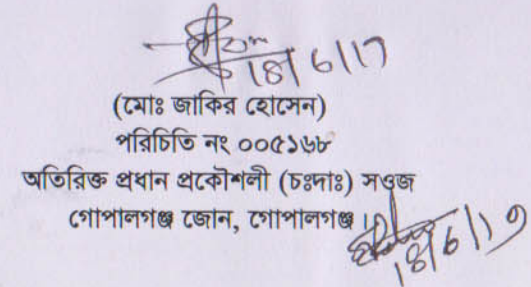 18/6/17
(মোঃ জাকির হোসেন)
পরিচিতি নং ০০৫১৬৮
অতিরিক্ত প্রধান প্রকৌশলী (চঃদাঃ) সওজ
গোপালগঞ্জ জোন, গোপালগঞ্জ।
18/6/17